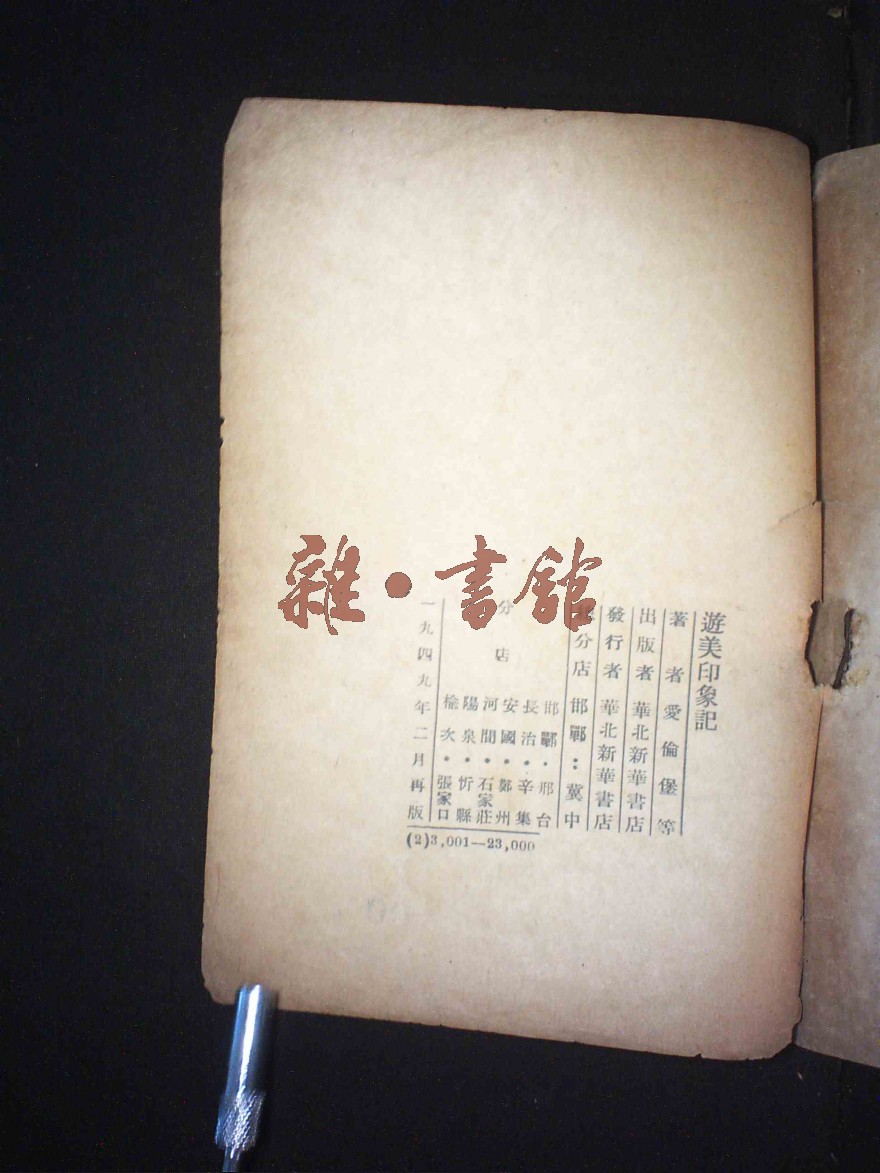 遊美印象記
著者 愛倫堡等
出版者 華北新華書店
發行者 華北新華書店
分店 邯鄲：冀中
分店
邯鄲・邢台
長治・辛集
安國・鄭州
河間・石家莊
陽泉・忻縣
榆次・張家口
一九四九年二月再版
(2)3,001—23,000
雜・書館